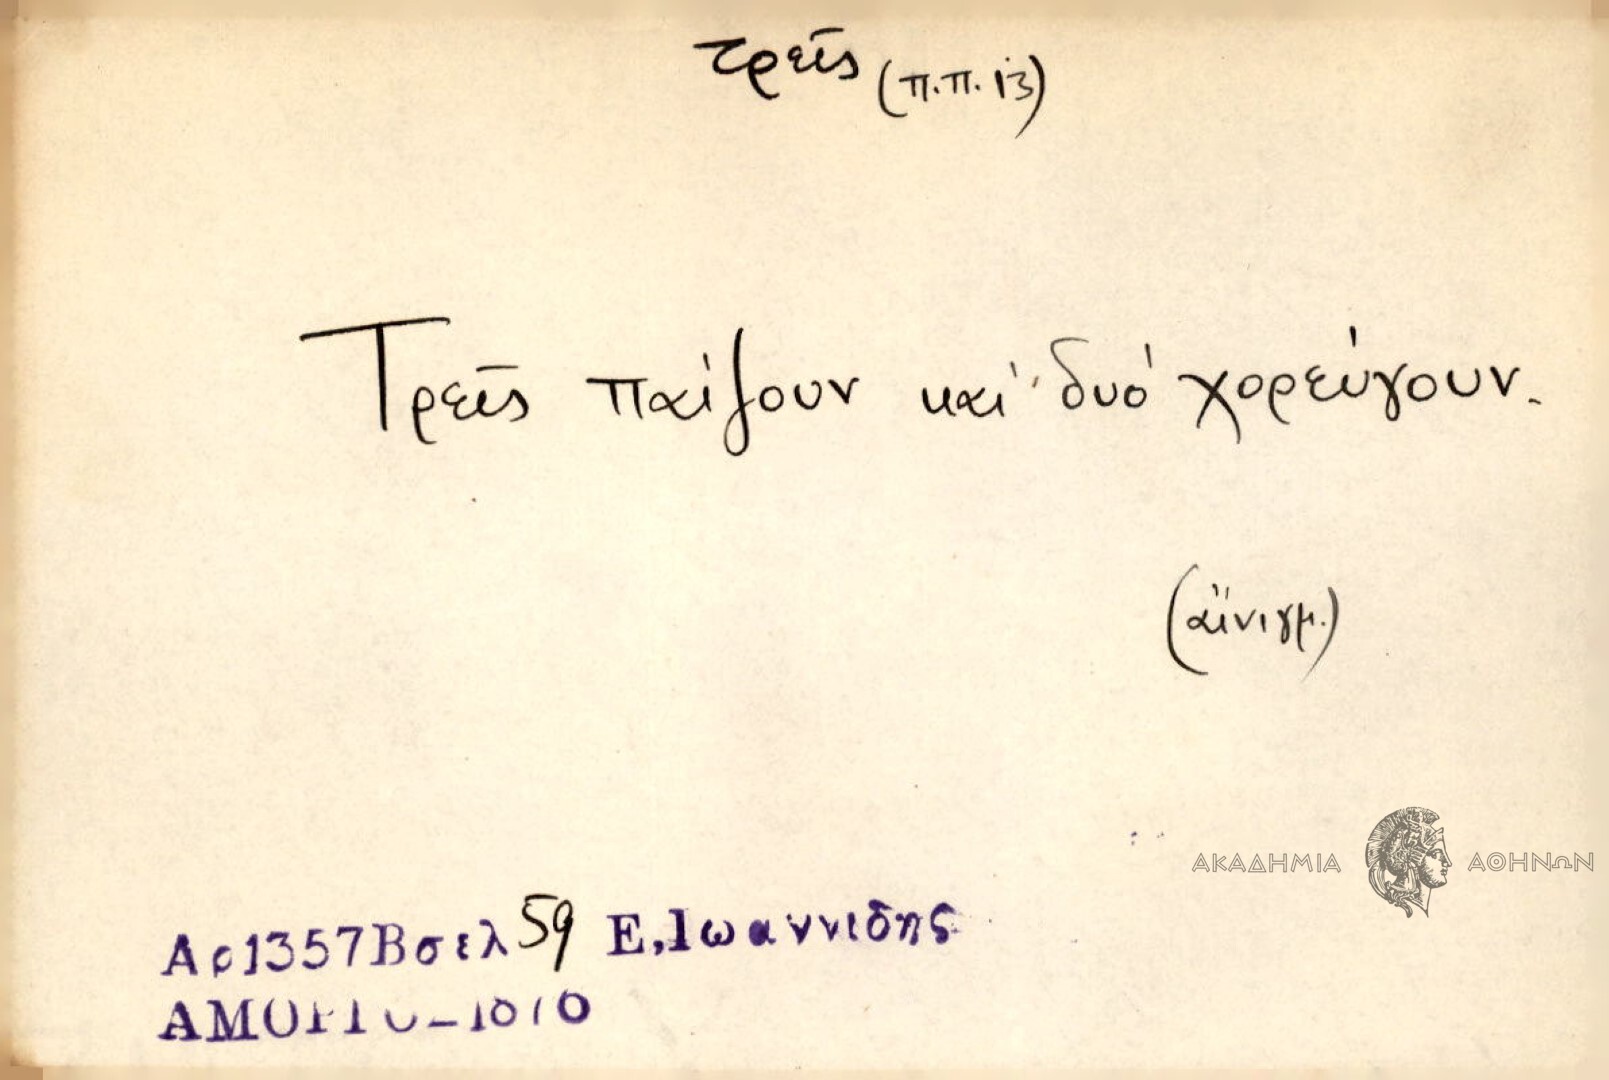 τρεῖς (π.π. 13)
Τρεῖς παίζουν καὶ δυὸ χορεύγουν.
(αἴνιγμ.)
ΑΚΑΔΗΜΙΑ ΑΘΗΝΩΝ
Αρ1357Βσελ 59 Ε.Ιωαννιδης